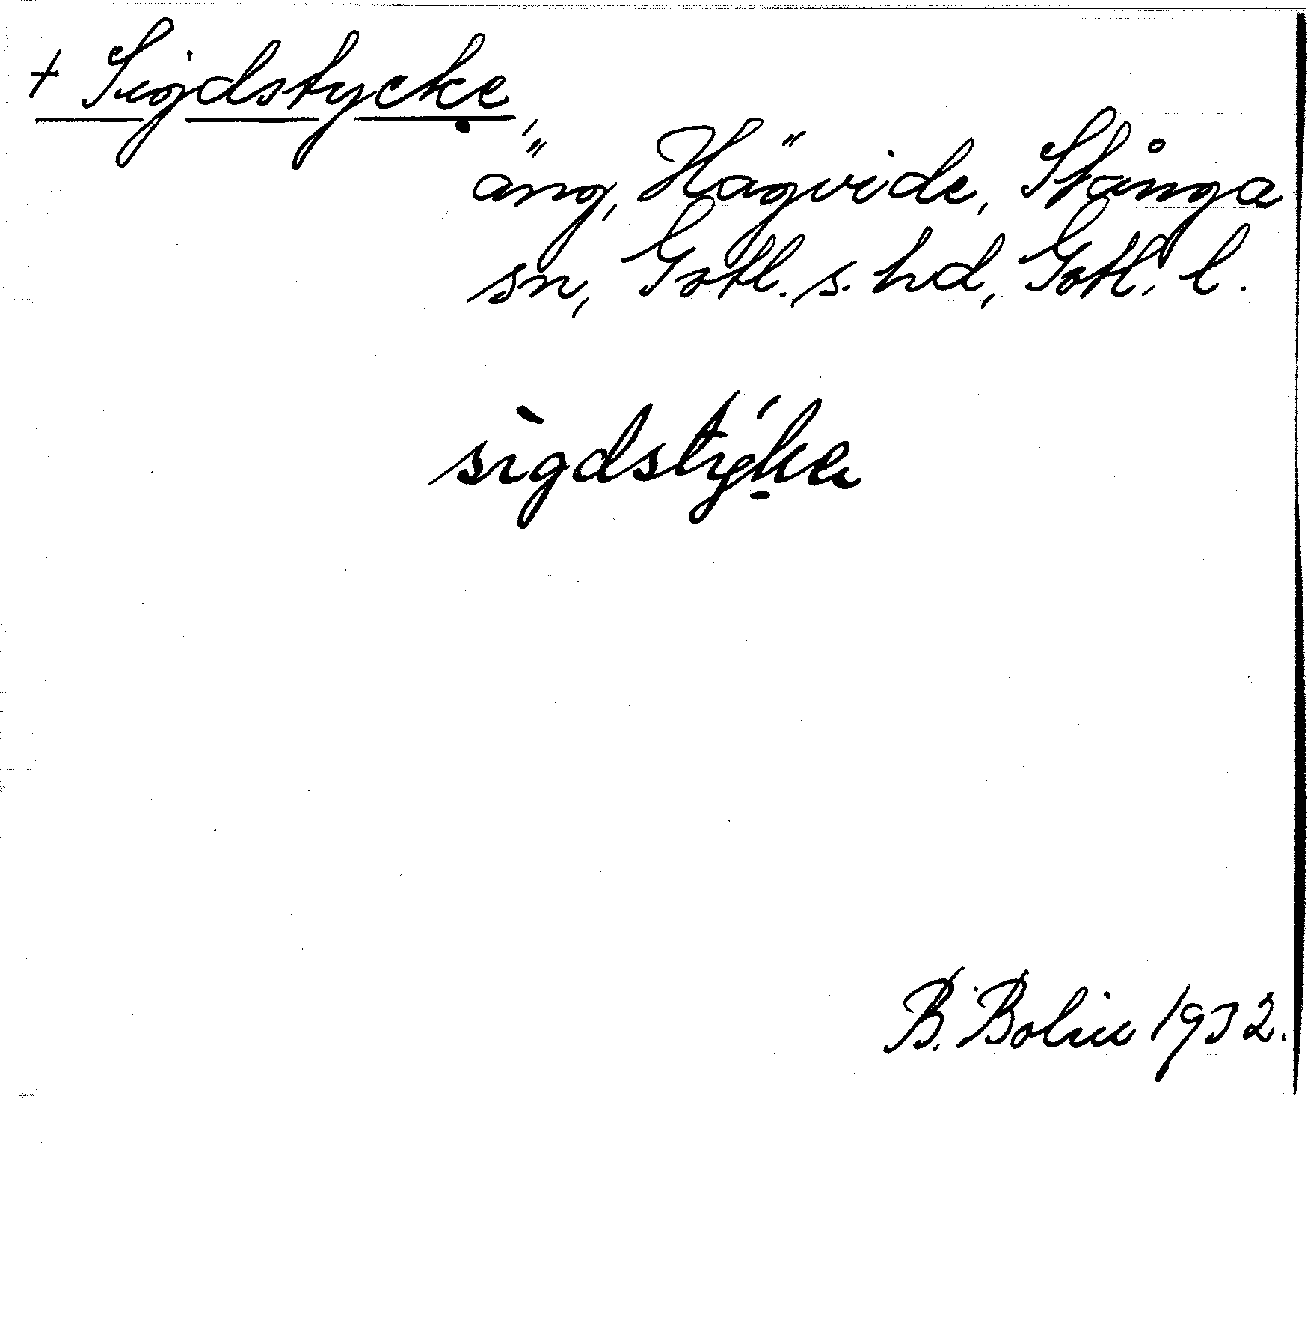 + Sigdstycke,
äng, Hägvide, Stånga
sn, Gotl. s. hd, Gotl. l.
sìgdstýkạ
B. Bolin 1932.